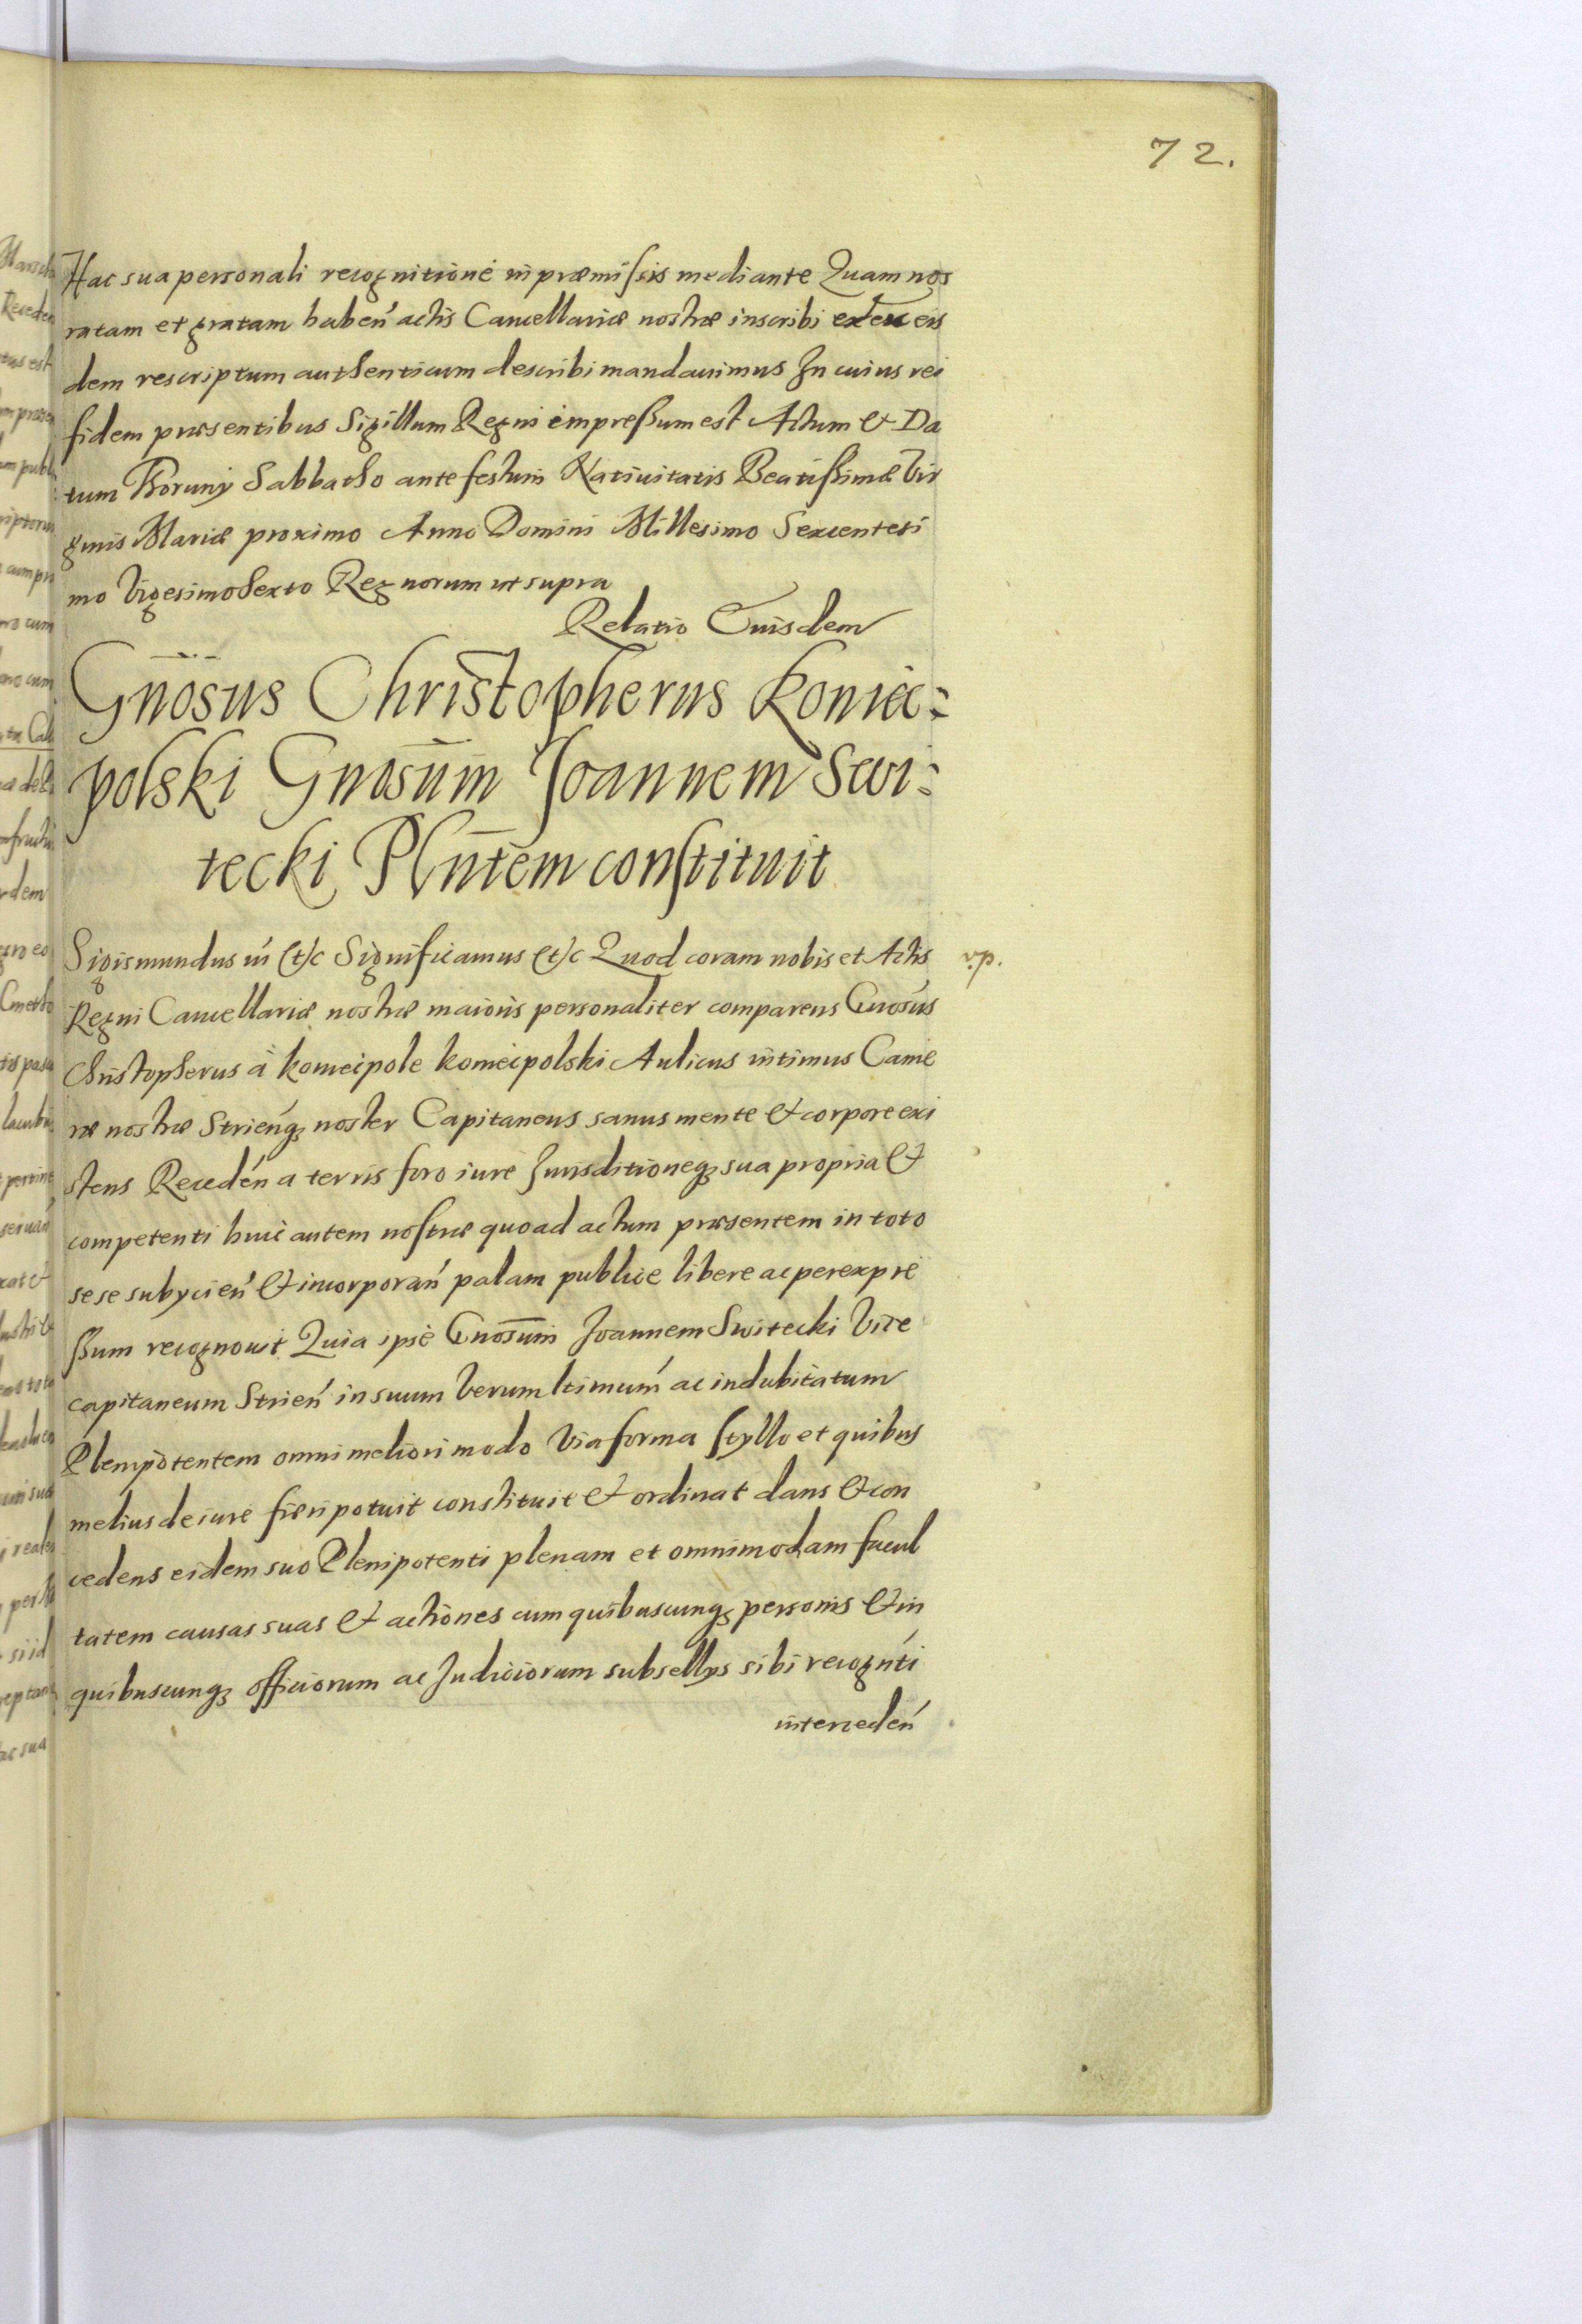 72.
Hac sua personali recognitione in præmissis mediante Quam nos
ratam et gratam habeń actis Cancellariæ nostræ inscribi et ex eis
dem rescriptum authenticum describi mandauimus In cuius rei
fidem præsentibus Sigillum Regni impreßum est Actum & Da
tum Thoruny Sabbatho ante festum Natiuitatis Beatißimæ Vir
ginis Mariæ proximo Anno Domini Millesimo Sexcentesi
mo Vigesimo Sexto Regnorum ut supra
Relatio Eiusdem
Gn̄osus Christopherus Koniec:
polski Gnosūm Joannem Swi:
tecki Plnt̄em constituit
Sigismundus III (et)c Significamus (et)c Quod coram nobis et Actis
Regni Cancellariæ nostræ maioris personaliter comparens Gnosus
Christopherus à Koniecpole Koniecpolski Aulicus intimus Came
ræ nostræ Strieńq; noster Capitaneus sanus mente & corpore exi
stens Recedéń a terris foro iure Jurisditioneq; sua propria &
competenti huic autem nostræ quoad actum præsentem in toto
sese subycień & incorporań palam publice libere ac per expre
ßum recognouit Quia ipse Gnosum Joannem Switecki Vice
capitaneum Strień in suum Verum ltimuḿ ac indubitatum
Plenipotentem omni meliori modo Via forma stylo et quibus
melius de iure fieri potuit constituit & ordinat dans & con
cedens eidem suo Plenipotenti plenam et omnimodam facul
tatem causas suas & actiones cum quibuscunq; personis & in
quibuscunq; officiorum ac Judiciorum subsellys sibi recognti
interceden